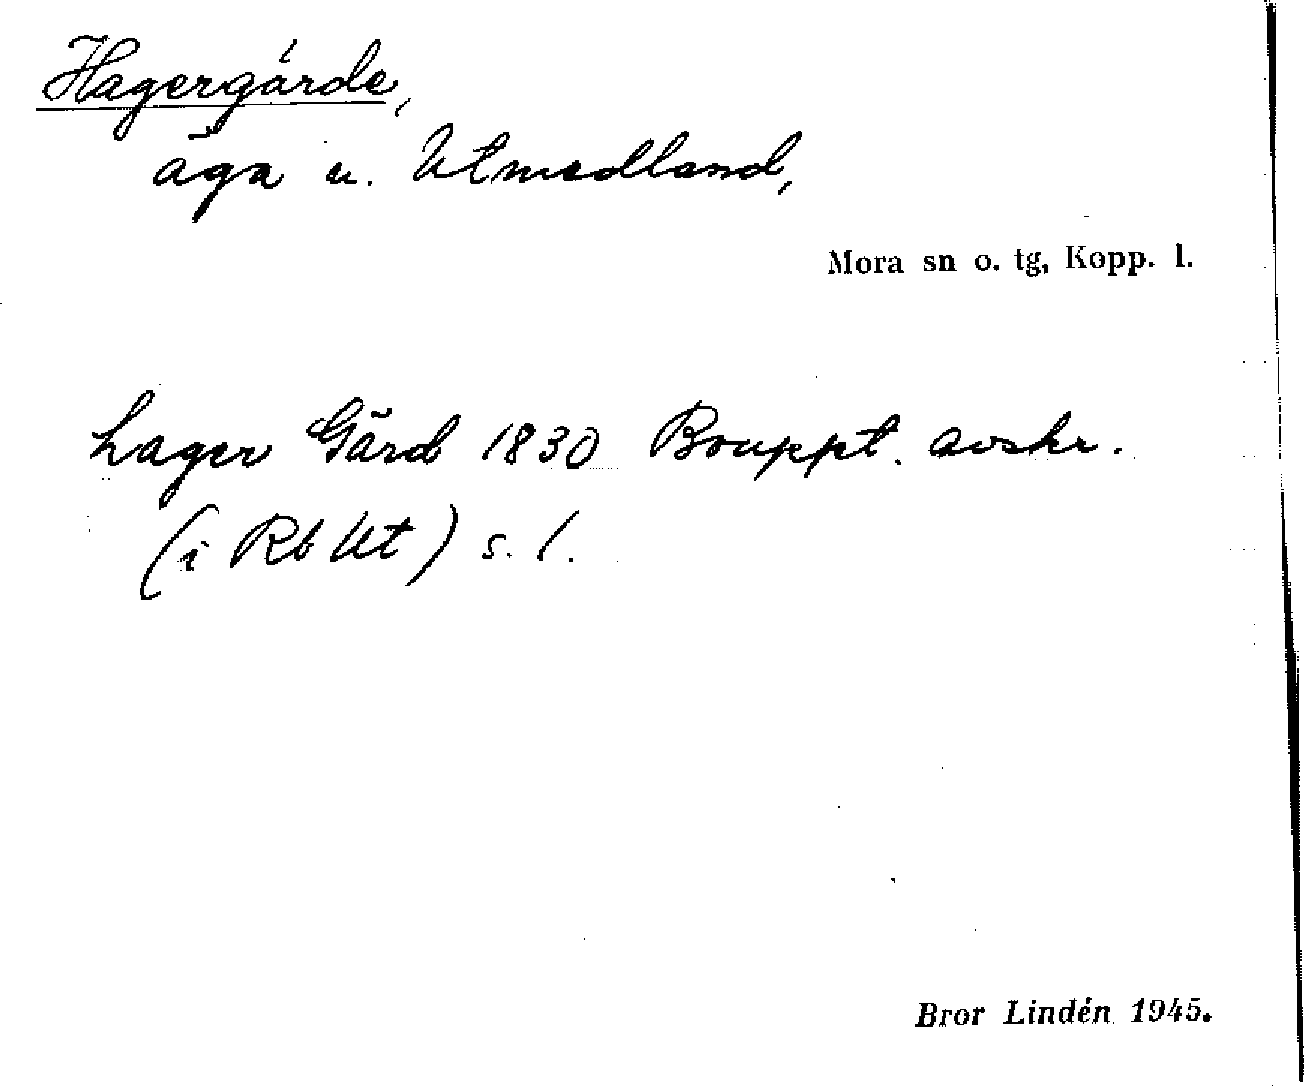 Hagergärde,
äga u. Utmedland,
Mora sn o. tg, Kopp. l.
Lager Gärd 1830 Bouppt. avskr.
(i Rb Ut) s. 1.
Bror Lindén 1945.